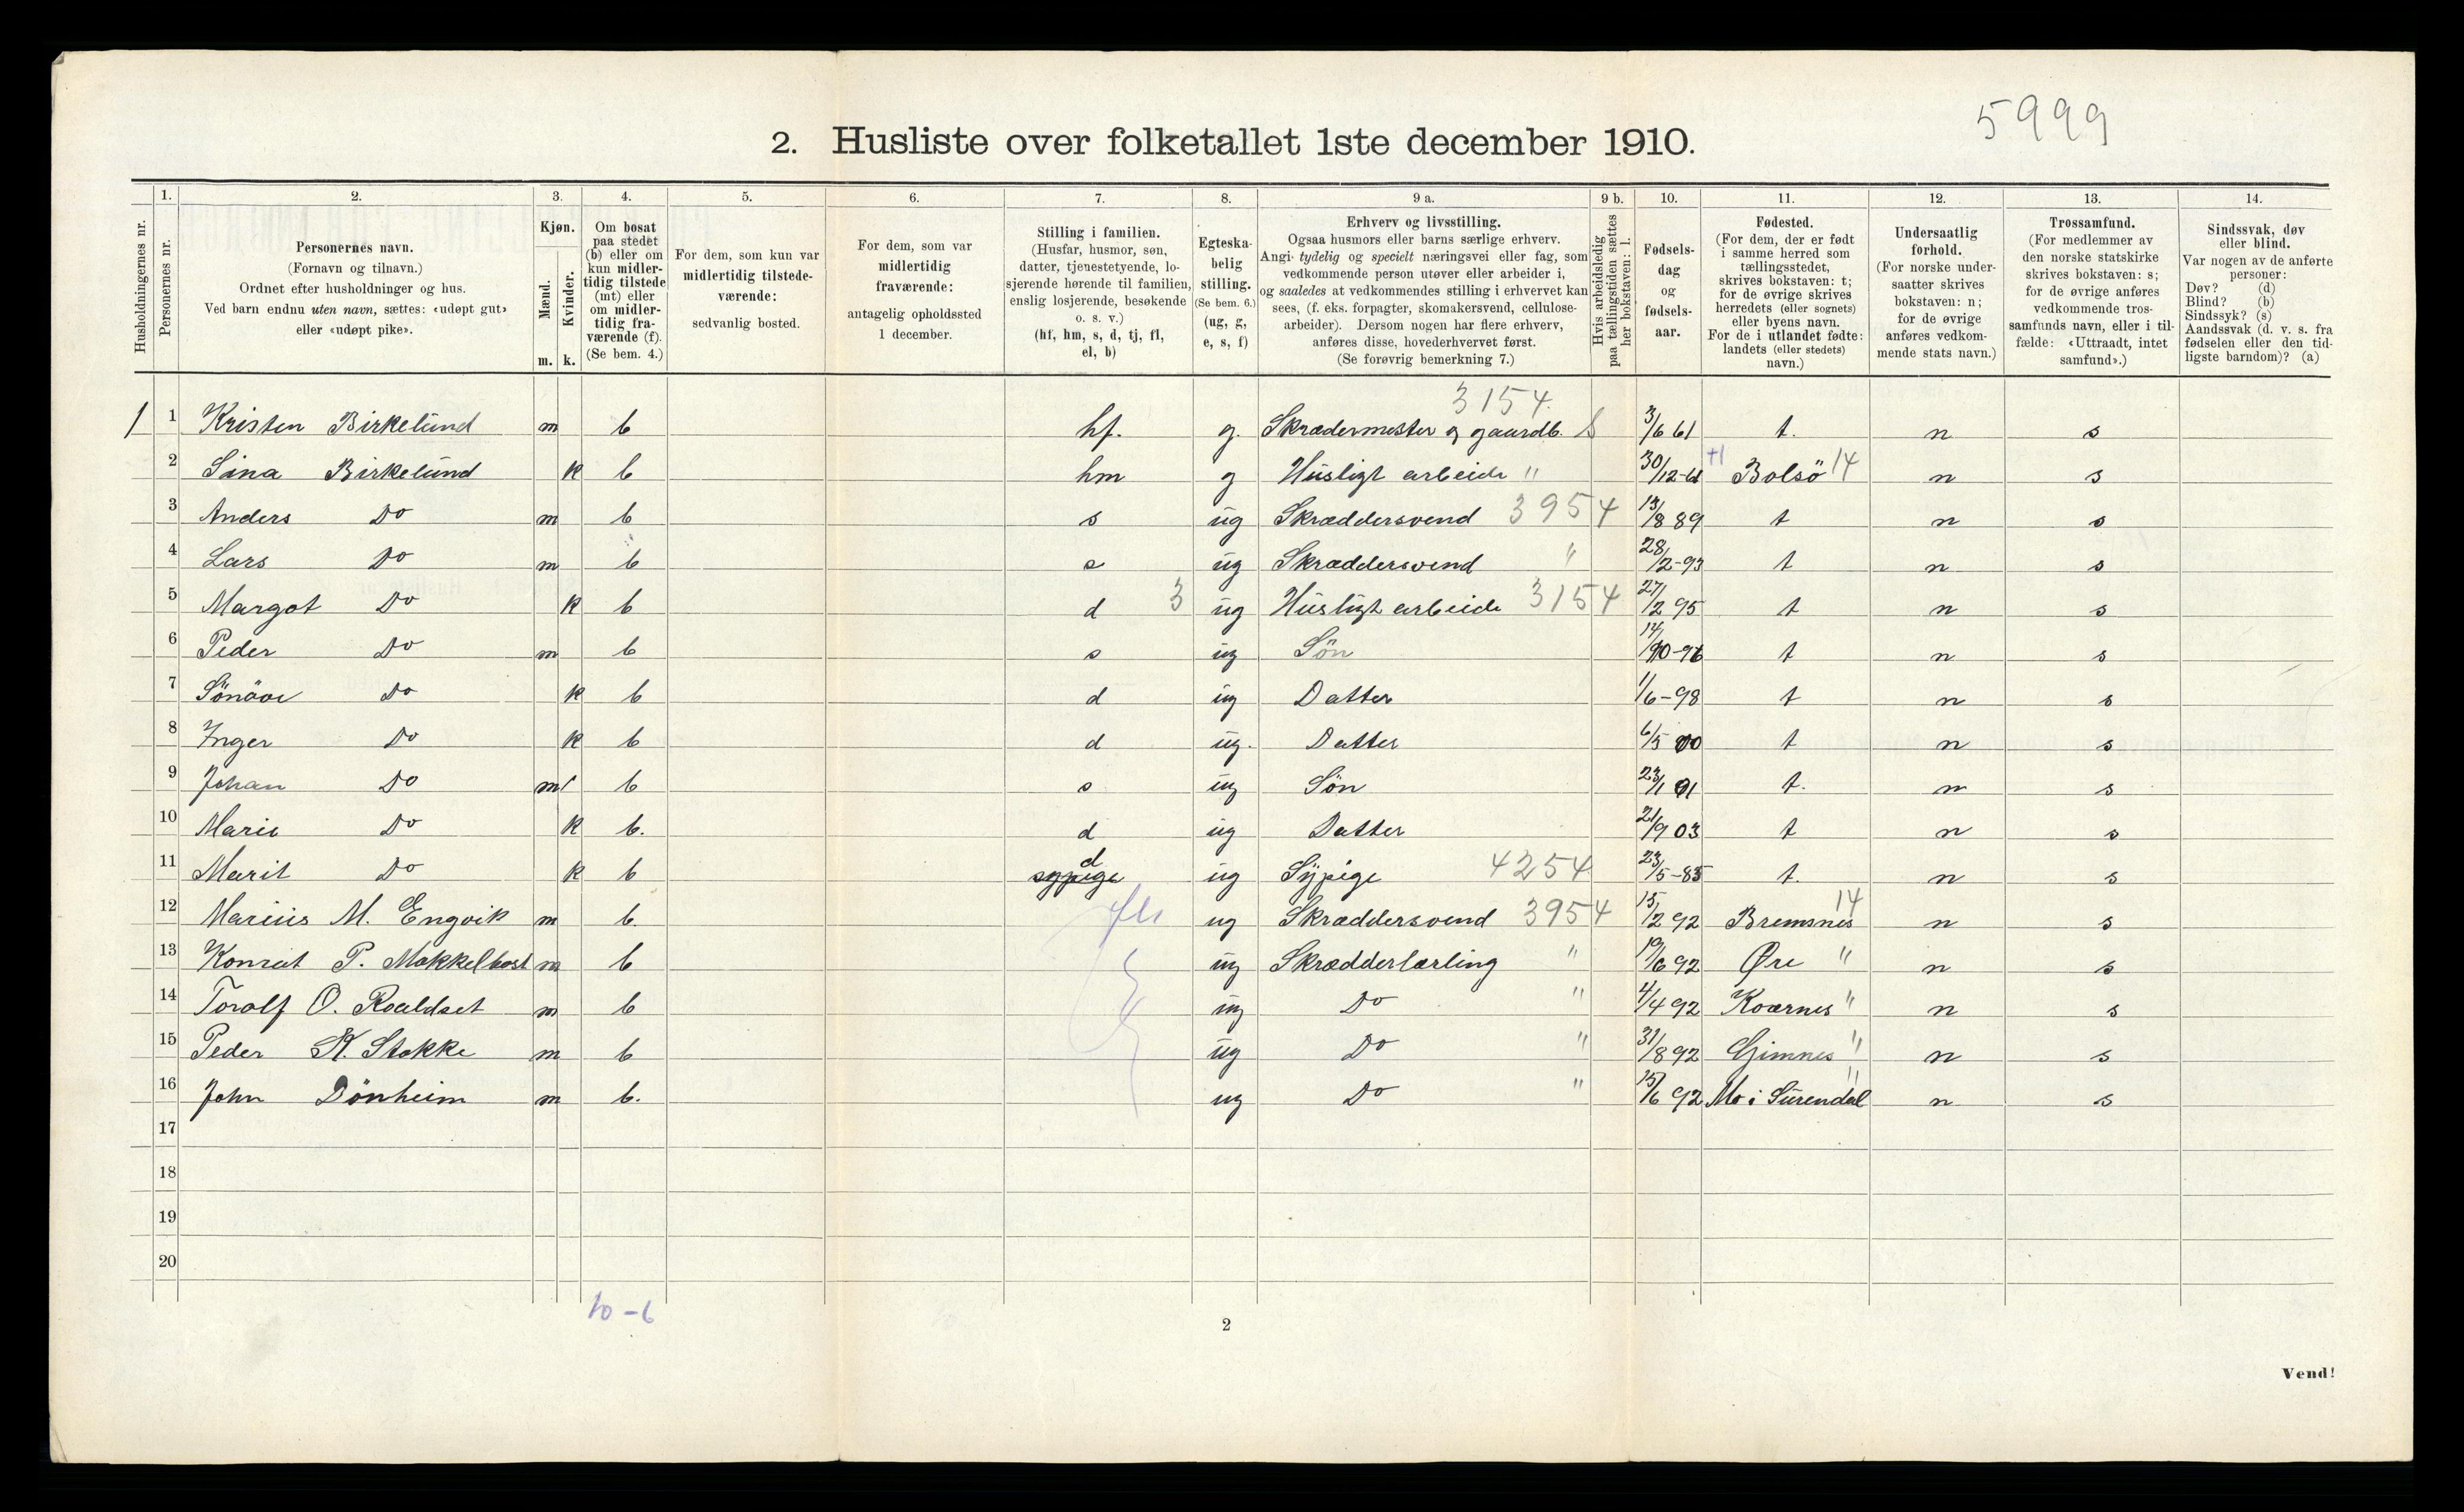 5999
2. Husliste over folketallet 1ste december 1910.
1. 2. 3. 4. 5. 6. 7. 8. 9 a. 9 b. 10. 11. 12. 13. 14.
Husholdningernes nr.
Personernes nr.
Personernes navn.
(Fornavn og tilnavn.)
Ordnet efter husholdninger og hus.
Ved barn endnu uten navn, sættes: «udøpt gut»
eller «udøpt pike».
Kjøn.
Mænd.
Kvinder.
m. k.
Om bosat
paa stedet
(b) eller om
kun midler-
tidig tilstede
(mt) eller
om midler-
tidig fra-
værende (f).
(Se bem. 4.)
For dem, som kun var
midlertidig tilstede-
værende:
sedvanlig bosted.
For dem, som var
midlertidig
fraværende:
antagelig opholdssted
1 december.
Stilling i familien.
(Husfar, husmor, søn,
datter, tjenestetyende, lo-
sjerende hørende til familien,
enslig losjerende, besøkende
o. s. v.)
(hf, hm, s, d, tj, fl,
el, b)
Egteska-
belig
stilling.
(Se bem. 6.)
(ug, g,
e, s, f)
Erhverv og livsstilling.
Ogsaa husmors eller barns særlige erhverv.
Angi tydelig og specielt næringsvei eller fag, som
vedkommende person utøver eller arbeider i,
og saaledes at vedkommendes stilling i erhvervet kan
sees, (f. eks. forpagter, skomakersvend, cellulose-
arbeider). Dersom nogen har flere erhverv,
anføres disse, hovederhvervet først.
(Se forøvrig bemerkning 7.)
Hvis arbeidsledig
paa tællingstiden sættes
her bokstaven: l.
Fødsels-
dag
og
fødsels-
aar.
Fødested.
(For dem, der er født
i samme herred som
tællingsstedet,
skrives bokstaven: t;
for de øvrige skrives
herredets (eller sognets)
eller byens navn.
For de i utlandet fødte:
landets (eller stedets)
navn.)
Undersaatlig
forhold.
(For norske under-
saatter skrives
bokstaven: n;
for de øvrige
anføres vedkom-
mende stats navn.)
Trossamfund.
(For medlemmer av
den norske statskirke
skrives bokstaven: s;
for de øvrige anføres
vedkommende tros-
samfunds navn, eller i til-
fælde: «Uttraadt, intet
samfund».)
Sindssvak, døv
eller blind.
Var nogen av de anførte
personer:
Døv? (d)
Blind? (b)
Sindssyk? (s)
Aandssvak (d. v. s. fra
fødselen eller den tid-
ligste barndom)? (a)
3154
1 1 Kristen Birkelund m b hf. g. Skrædermester og gaardb. S 3/6 61 t. n s
2 Sina Birkelund k b hm g Husligt arbeide " 30/12-61 +1 Bolsö 14 n s
3 Anders Do m b s ug Skræddersvend 3954 13/8 89 t n s
4 Lars Do m b s ug Skræddersvend " 28/2-93 t n s
5 Margot Do k b d 3 ug Husligt arbeide 3154 27/2 95 t n s
6 Peder Do m b s ug Sön 14/10-96 t n s
7 Sönöve Do k b d ug Datter 1/6-98 t n s
8 Inger Do k b d ug. Datter 6/5 00 t n s
9 Johan Do m b s ug Sön 23/1 01 t. n s
10 Marie Do k b. d ug Datter 21/9 03 t n s
11 Marit Do k b sypige d ug Sypige 4254 23/5-85 t. n s
12 Marius M. Engvik m b. fl ug Skræddersvend 3954 15/2 92 Bremsnes 14 n s
13 Konrat P. Mokkelbost m b ug Skrædderlærling " 19/6 92 Øre " n s
14 Torolf O. Roaldset m b ug Do " 4/4 92 Kværnes " n s
15 Peder K. Stokke m b ug Do " 31/8 92 Gimnes " n s
16 John Dönheim m b. ug Do " 15/6 92 Mo i Surendal " n s
17
18
19
20
10-6
2
Vend!